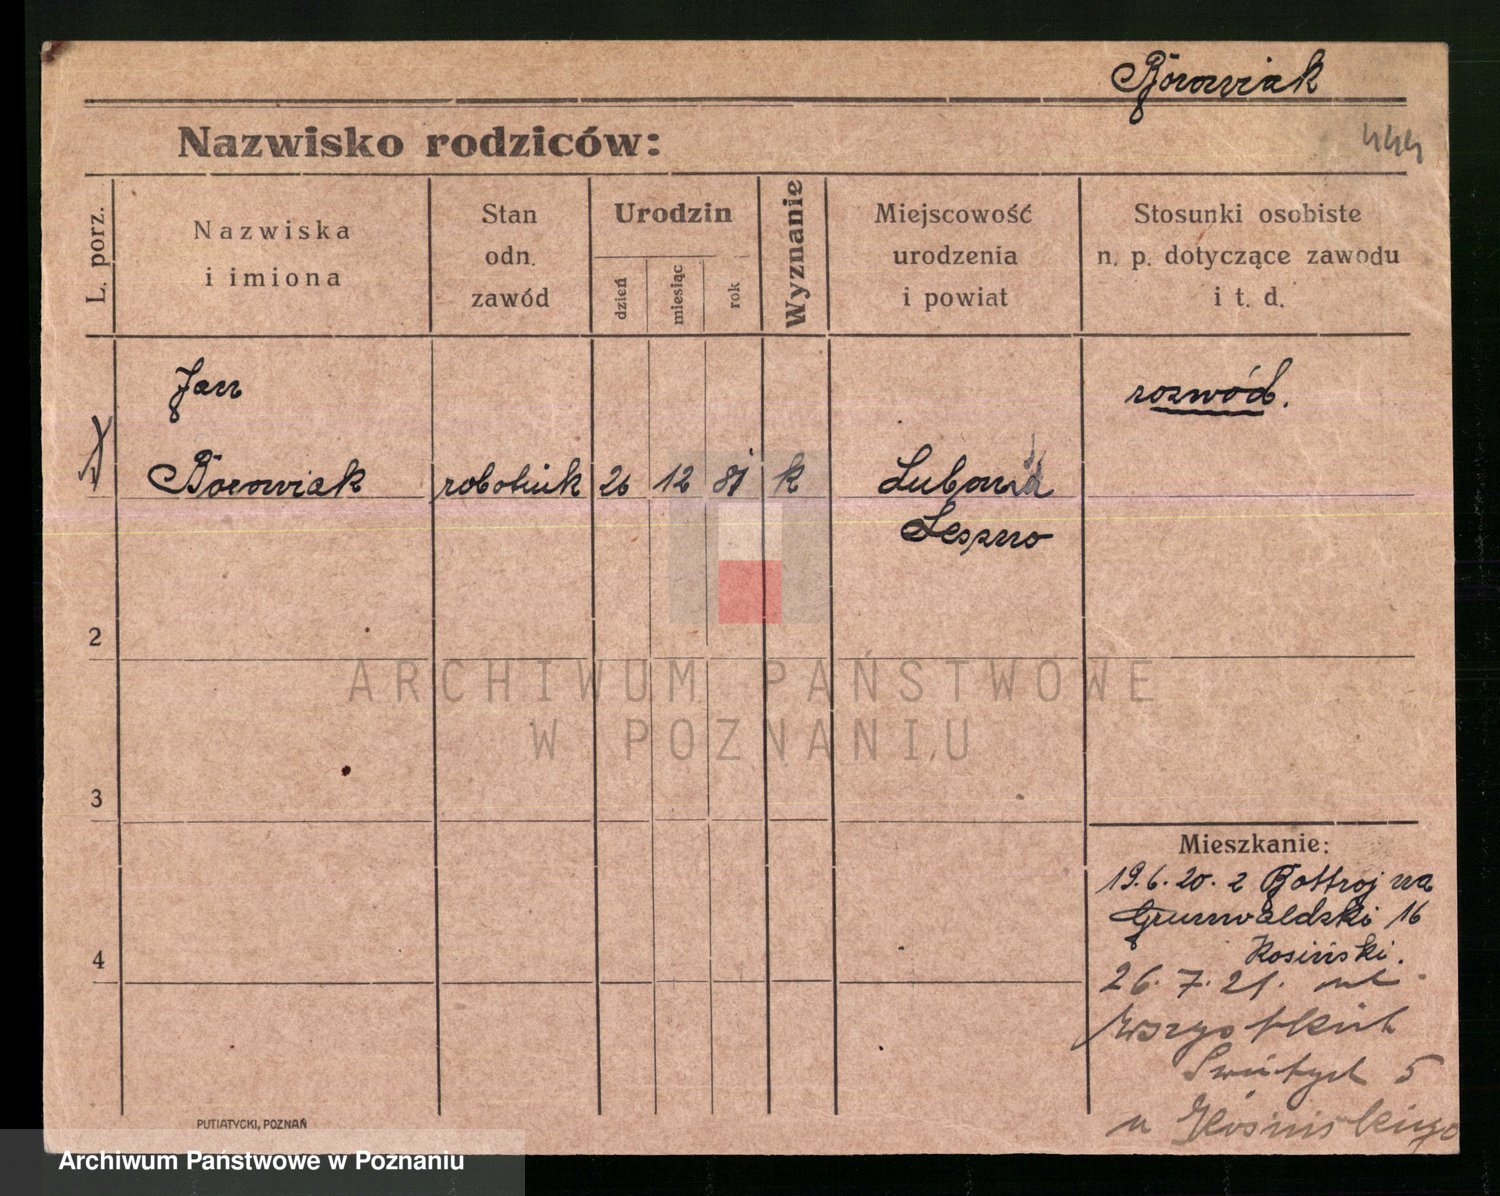 Borowiak
Nazwisko rodziców:
444
L. porz.
Nazwiska
i imiona
Stan
odn.
zawód
Urodzin
dzień
miesiąc
rok
Wyznanie
Miejscowość
urodzenia
i powiat
Stosunki osobiste
n. p. dotyczące zawodu
i t. d.
Jan
rozwód.
Borowiak robotnik 26 12 81 k
Leszno
2
ARCHIWUM PAŃSTWOWE
W POZNANIU
3
Mieszkanie:
19.6.20. z na
Grunwaldzki 16
Kosiński.
4
26.7.21. ul.
Wszystkich
Świętych 5
u
PUTIATYCKI, POZNAŃ
Archiwum Państwowe w Poznaniu